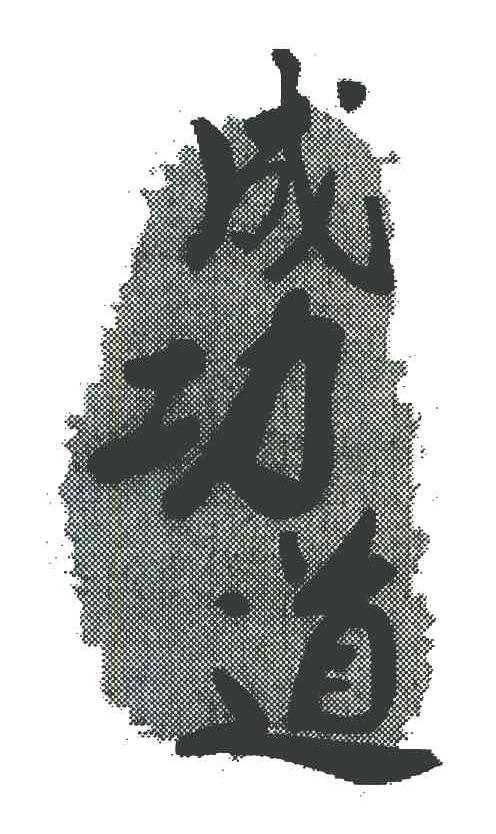 成功道